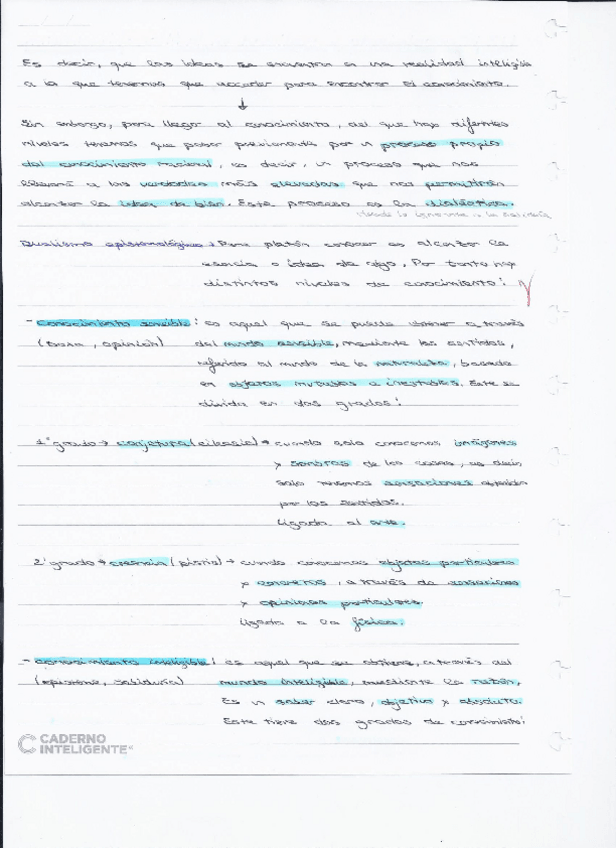 Es decir, que las ideas se encuentran en una realidad inteligible
a la que tenemos que acceder para encontrar el conocimiento.
↓
Sin embargo, para llegar al conocimiento, del que hay diferentes
niveles tenemos que pasar previamente por un proceso propio
del conocimiento racional, es decir, un proceso que nos
llevará a las verdades más elevadas que nos permitirán
alcanzar la idea de bien. Este proceso es la dialéctica.
desde la ignorancia a la sabiduría
Dualismo epistemológico: Para platón conocer es alcanzar la
esencia o idea de algo. Por tanto hay
distintos niveles de conocimiento:
- Conocimiento sensible: es aquel que se puede obtener a través
(Doxa, opinión) del mundo sensible, mediante los sentidos,
referido al mundo de la naturaleza, basada
en objetos mutables e inestables. Este se
divide en dos grados:
1º grado → conjetura (eikasia) → cuando solo conocemos imágenes
y sombras de las cosas, es decir
solo tenemos sensaciones
por los sentidos.
Ligada al arte.
2º grado → creencia (pistis) → cuando conocemos objetos particulares
y concretos, a través de sensaciones
y opiniones particulares.
Ligada a la física.
- Conocimiento inteligible: es aquel que se obtiene, a través del
(episteme, sabiduría) mundo inteligible, mediante la razón,
Es un saber claro, objetivo y absoluto.
Este tiene dos grados de conocimiento:
CADERNO
INTELIGENTE